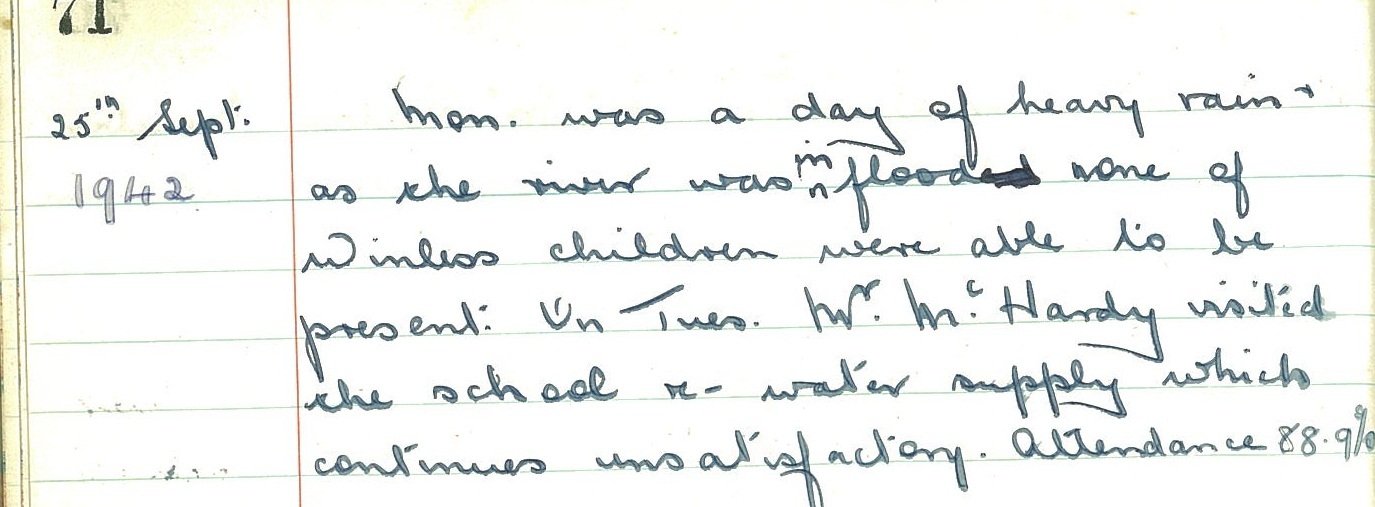 71
25th Sept. Mon. was a day of heavy rain +
1942 as the river was in flood none of
Winless children were able to be
present. On Tues. Mr. Mc Hardy visited
the school re- water supply which
continues unsatisfactory. Attendance 88.9%